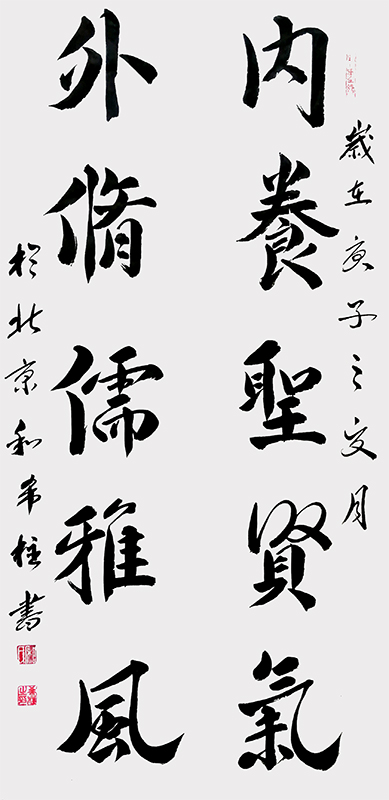 歲在庚子之夏月
內養聖賢氣
外脩儒雅風
於北京和希柱書